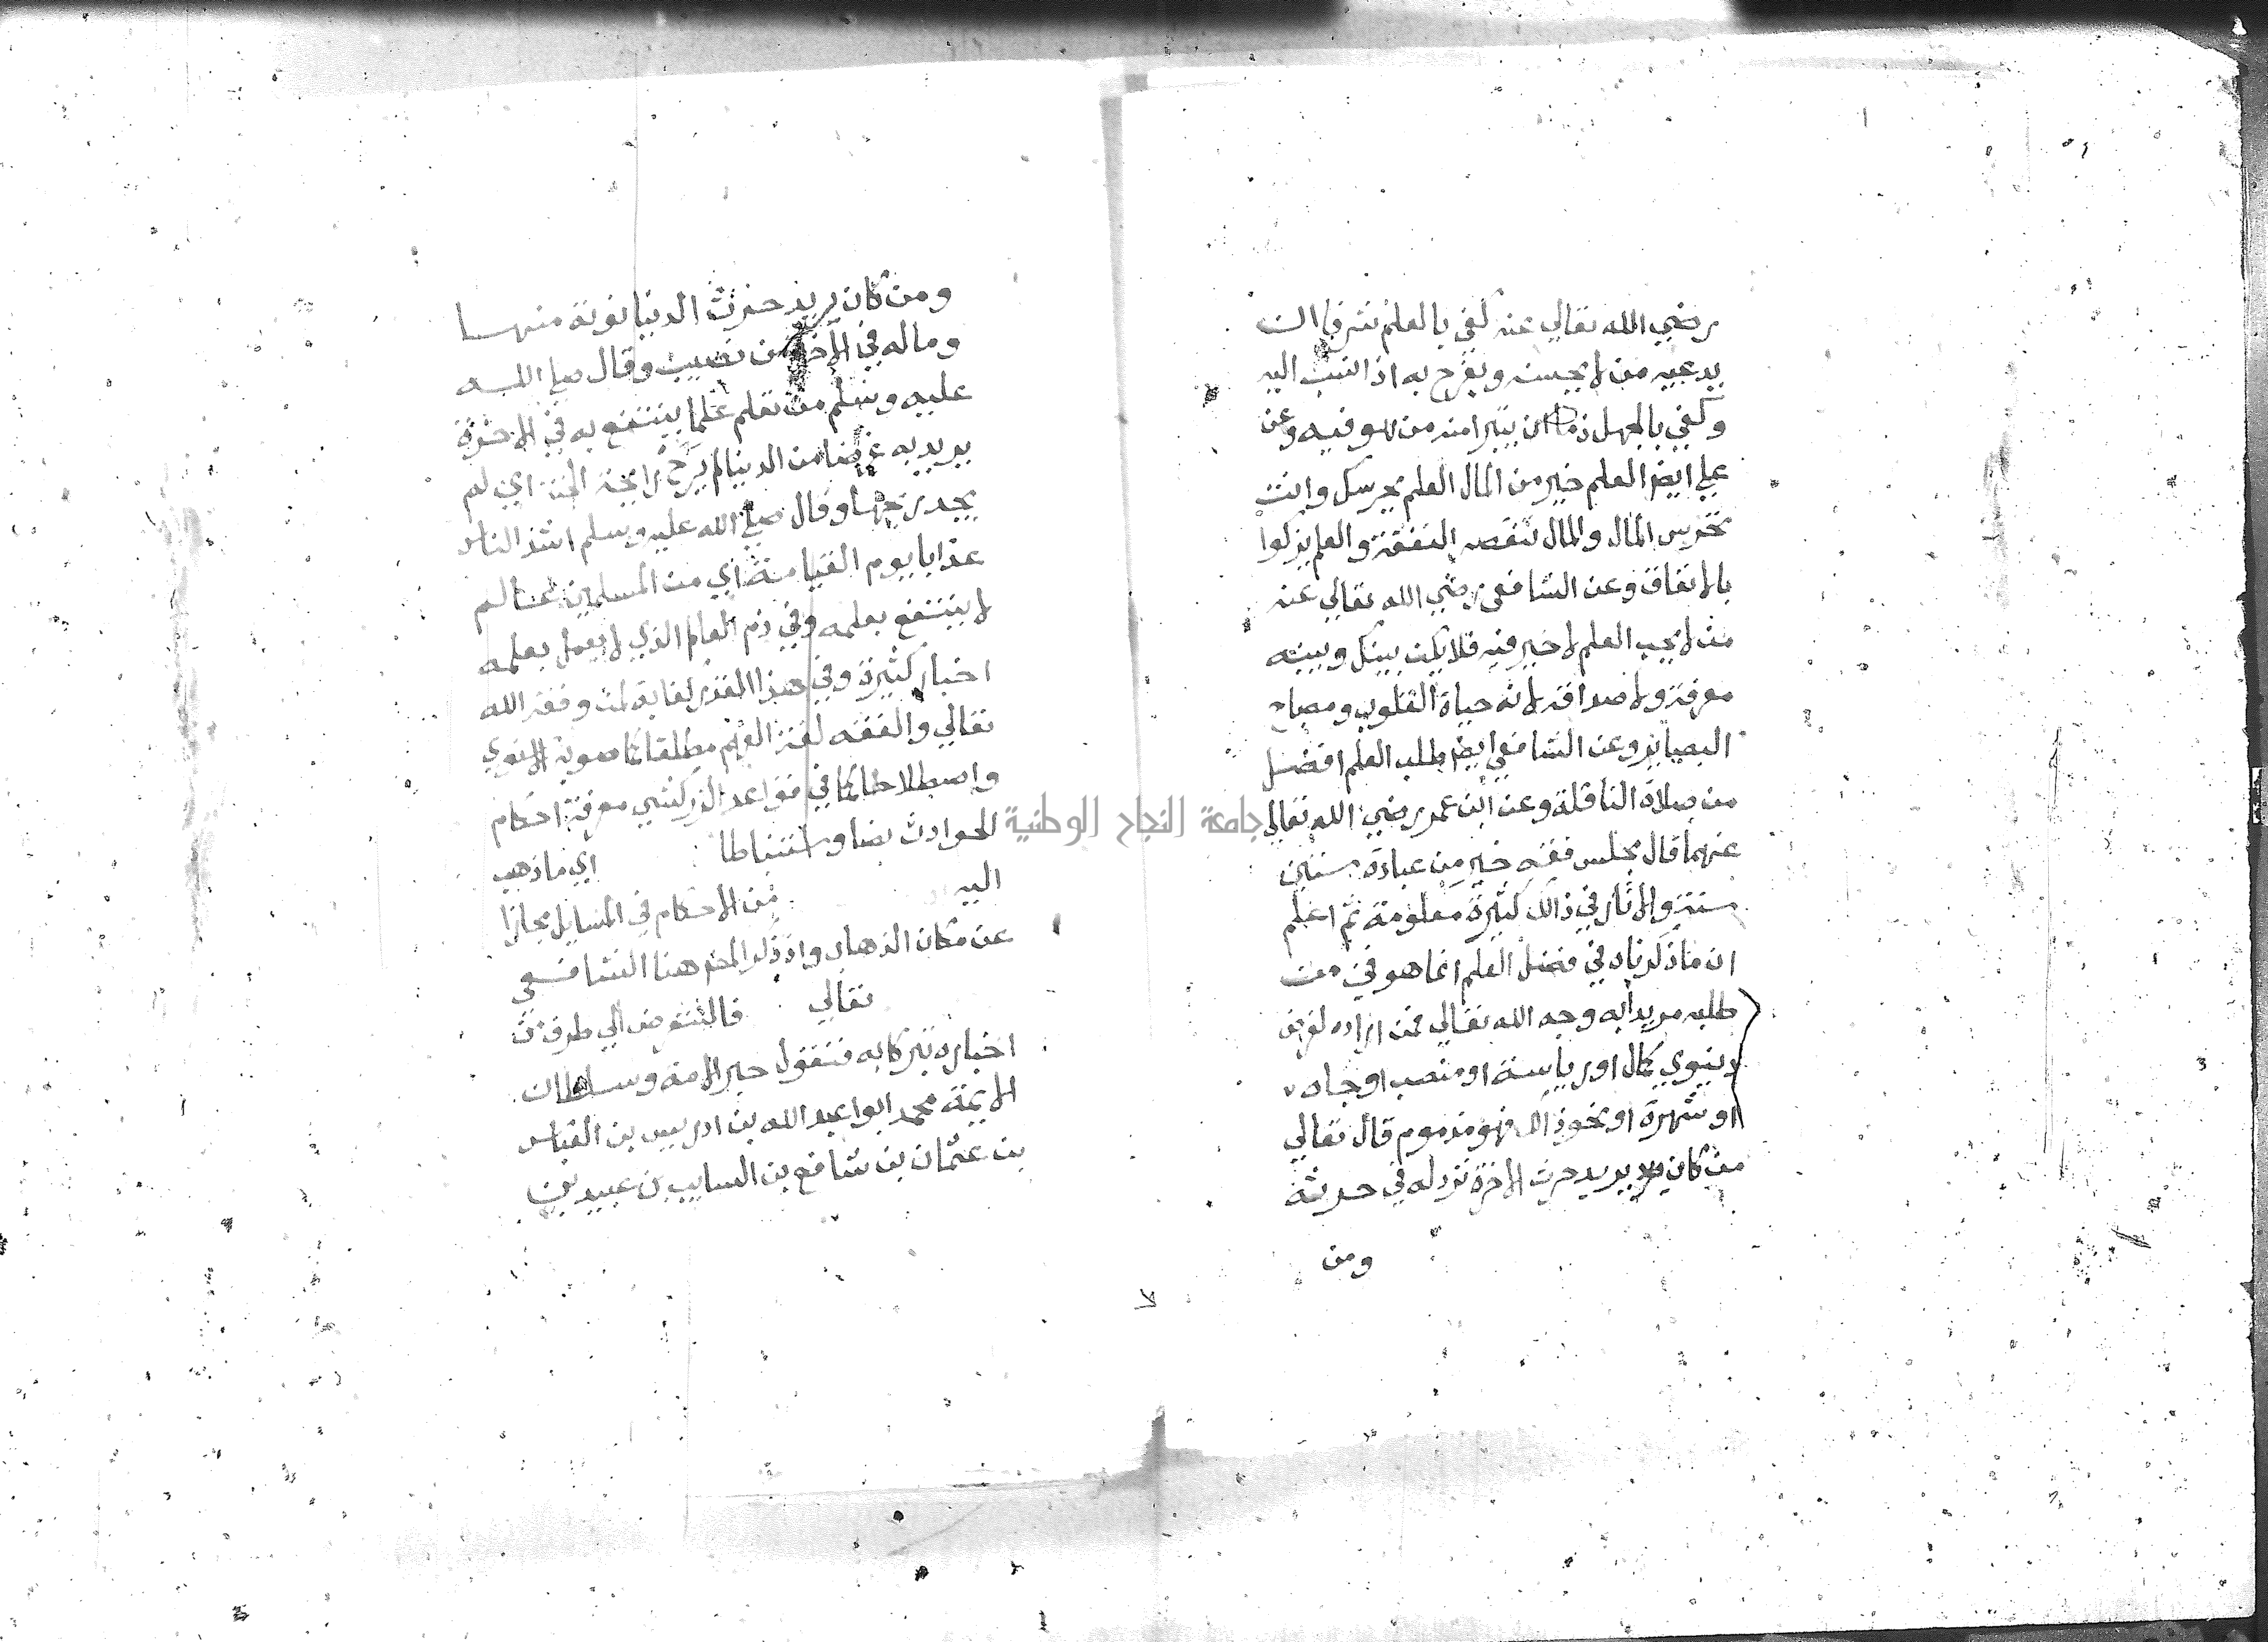 رضي الله تعالي عنه كفي بالعلم شرفا ان
يدعيه من لا يحسنه ويفرح به اذا نسب اليه
وكفي بالجهل ذما ان يتبرا منه من هو فيه وعن
علي ايضا العلم خير من المال العلم يحرسك وانت
تحرس المال والمال تنقصه النفقة والعلم يزكوا
بالانفاق وعن الشافعي رضي الله تعالي عنه
من لا يحب العلم لا خير فيه فلا يكن بينك وبينه
معرفة ولا صداقة لانه حياة القلوب ومصباح
البصاير وعن الشافعي ايضا طلب العلم افضل
من صلاة النافلة وعن ابن عمر رضي الله تعالي
عنهما قال مجلس فقه خير من عبادة ستين
سنة والاثار في ذالك كثيرة معلومة ثم اعلم
ان ما ذكرناه في فضل العلم انما هو في من
طلبه مريدا به وجه الله تعالي فمن اراده لغرض
دنيوي كمال او رياسة او منصب او جاه
او شهرة او نحو ذالك فهو مذموم قال تعالي
من كان يريد حرث الاخرة نزد له في حرثه
ومن
ومن كان يريد حرث الدنيا نوته منها
وماله في الاخرة من نصيب وقال صلي الله
عليه وسلم من تعلم علما ينتفع به في الاخرة
يريد به عرضا من الدنيا لم يرح رائحة الجنة اي لم
يجد ريحها وقال صلي الله عليه وسلم اشد الناس
عذابا يوم القيامة اي من المسلمين عالم
لا ينتفع بعلمه وفي ذم العالم الذي لا يعمل بعلمه
اخبار كثيرة وفي هذا القدر كفاية لمن وفقه الله
تعالي والفقه لغة الفهم مطلقا كما صوبه الاسنوي
واصطلاحا كما في قواعد الزركشي معرفة احكام
الحوادث نصا واستنباطا اي ما ذهب
اليه من الاحكام في المسايل مجازا
عن مكان الذهاب واذ ذكر المص هنا الشافعي
تعالي فالنتعرض الي طرف من
اخباره تبركا به فنقول حبر الامة وسلطان
الايمة محمد ابوا عبد الله بن ادريس بن العباس
بن عثمان بن شافع بن السايب بن عبيد بن
جامعة النجاح الوطنية